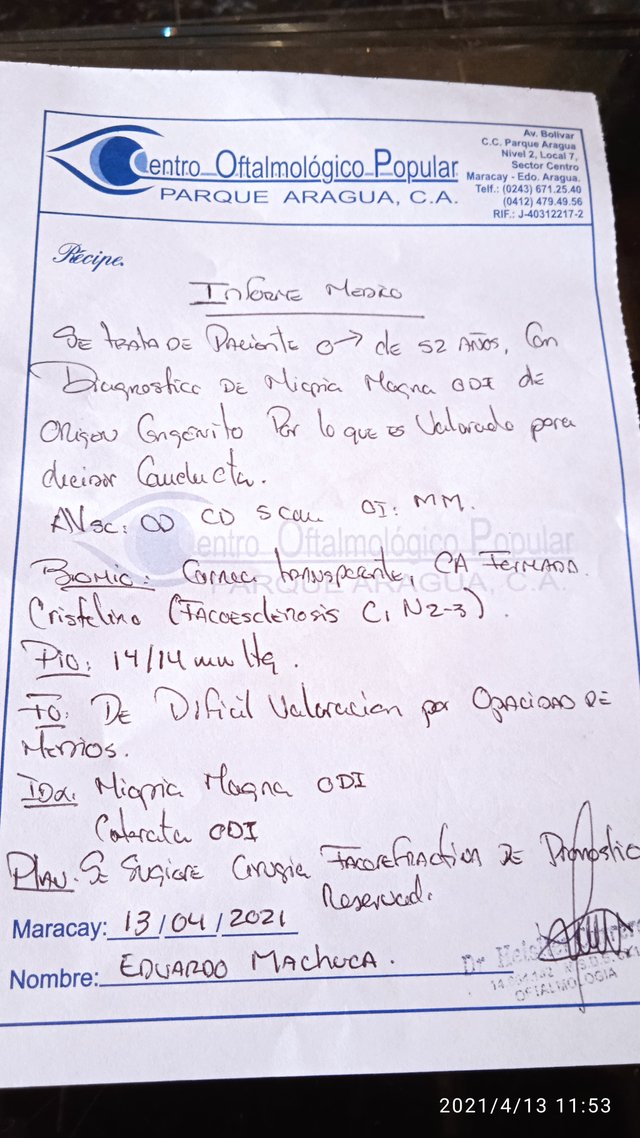 Centro Oftalmológico Popular
PARQUE ARAGUA, C.A.
Av. Bolívar
C.C. Parque Aragua
Nivel 2, Local 7,
Sector Centro
Maracay - Edo. Aragua.
Telf.: (0243) 671.25.40
(0412) 479.49.56
RIF.: J-40312217-2
Récipe.
Informe Medico
Se trata de Paciente ♂ de 52 años, con
Diagnostico de Miopia Magna ODI de
Origen Congenito Por lo que es Valorado para
decidir Conducta.
AVsc: OD CD 5 cm OI: MM.
Centro Oftalmológico Popular
PARQUE ARAGUA, C.A.
Biomic: Cornea transparente, CA Formada.
Cristalino (Facoesclerosis C1 N2-3).
PIO: 14/14 mm Hg.
FO: De Dificil Valoracion por Opacidad de
Medios.
IDx: Miopia Magna ODI
Catarata ODI
Plan. Se Sugiere Cirugia Facorefractiva de Pronostico
Reservad.
Maracay: 13/04/2021
Nombre: EDUARDO MACHUCA.
Dr.
OFTALMOLOGIA
2021/4/13 11:53